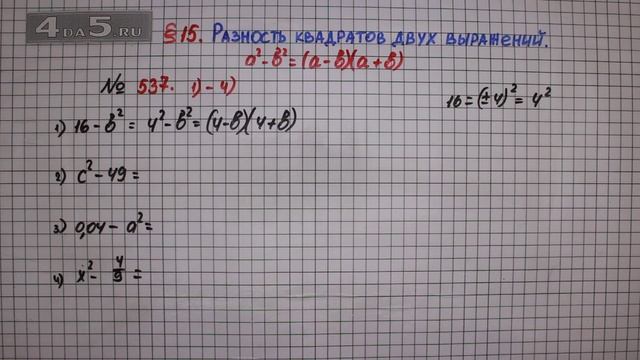 4DA5.RU
§15. Разность квадратов двух выражений.
a² - в² = (a - в)(a + в)
№ 537. 1) - 4)
16 = (±4)² = 4²
1) 16 - в² = 4² - в² = (4 - в)(4 + в)
2) c² - 49 =
3) 0,04 - a² =
4) x² - 4/9 =